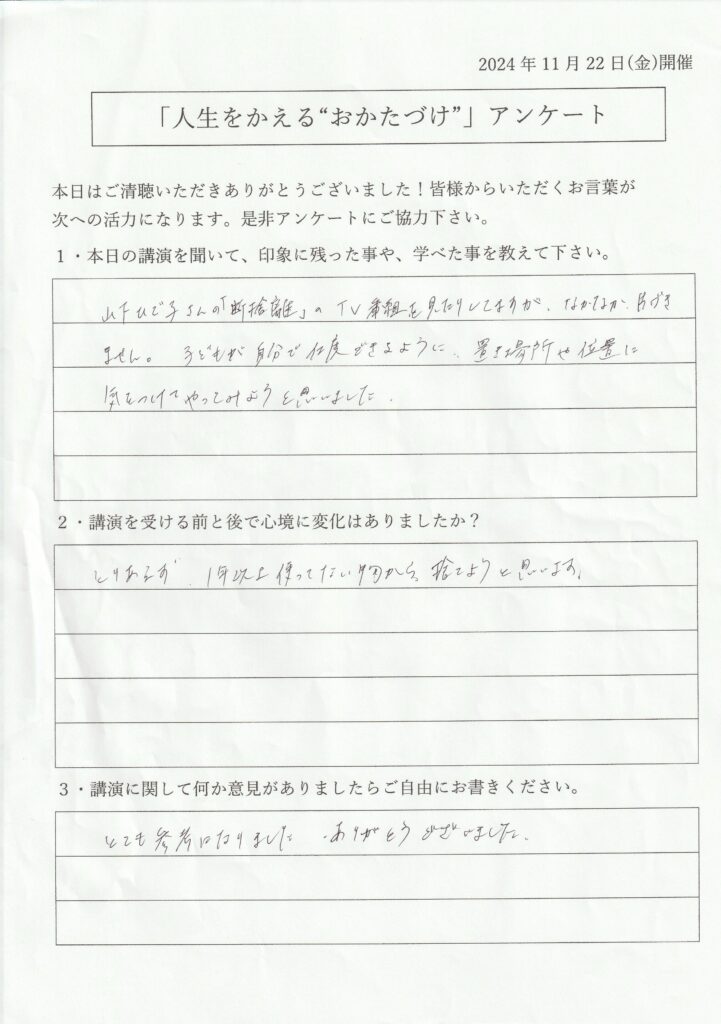 2024年11月22日(金)開催
「人生をかえる“おかたづけ”」アンケート
本日はご清聴いただきありがとうございました！皆様からいただくお言葉が
次への活力になります。是非アンケートにご協力下さい。
１・本日の講演を聞いて、印象に残った事や、学べた事を教えて下さい。
山下ひで子さんの「断捨離」のTV番組を見たりしてますが、なかなか片づき
ません。子どもが自分で仕度できるように、置き場所や位置に
気をつけてやってみようと思いました。
２・講演を受ける前と後で心境に変化はありましたか？
とりあえず、1年以上使ってない物から、捨てようと思います。
３・講演に関して何か意見がありましたらご自由にお書きください。
とても参考になりました。ありがとうございました。